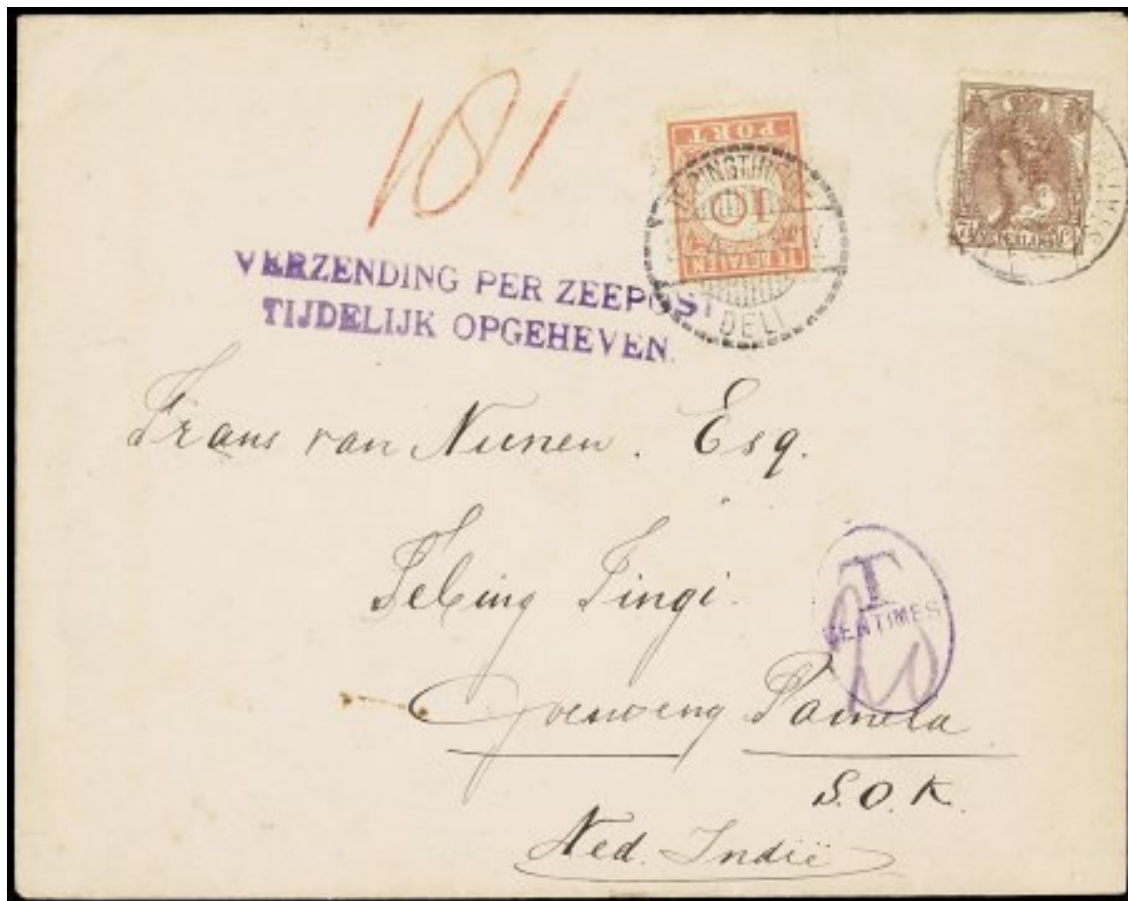 181
PORT
10
TE BETALEN
DELI
7½
VERZENDING PER ZEEPOST
TIJDELIJK OPGEHEVEN.
Frans van Nunen. Esq.
Tebing Tingi.
T
CENTIMES
20
Goenoeng Pamela
S.O.K.
Ned. Indië